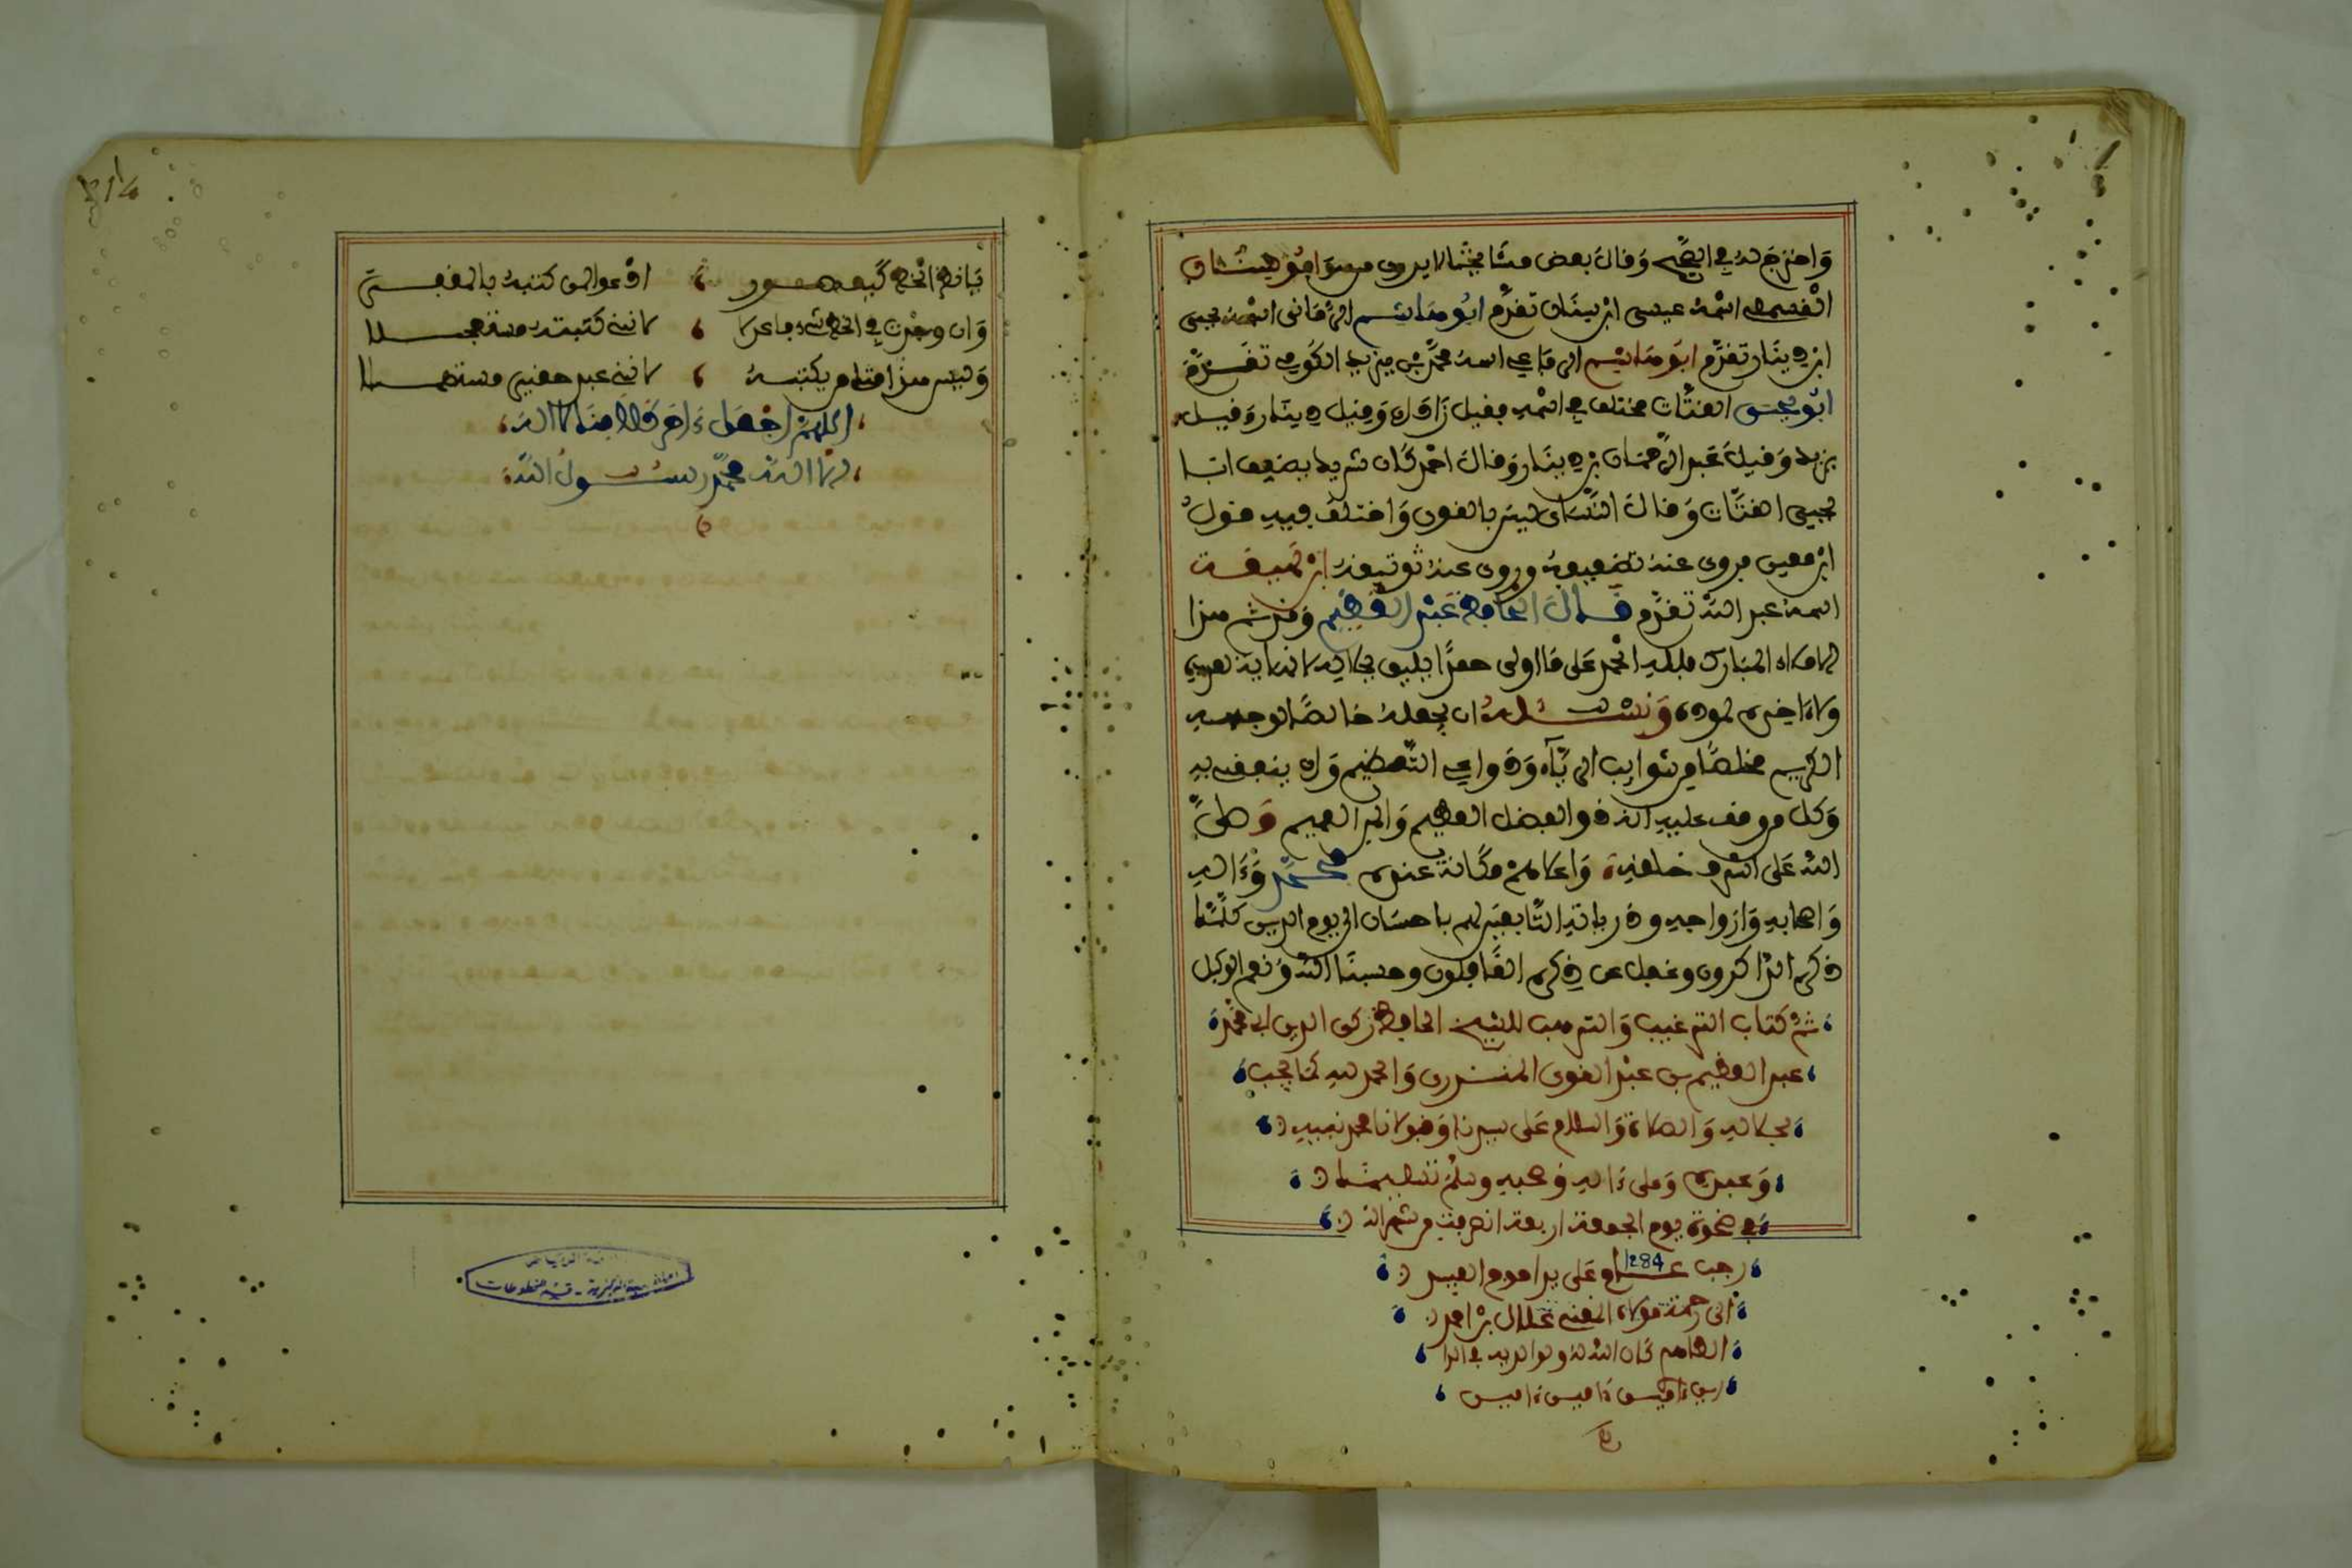 وَاحتج به في الصحيح وَقال بعض مشايخنا لا يروى من سوَا أبو سنان
القسملي اسمهُ عيسى ابن سنان تقدّم أبو هاشم الرُّمَّاني اسمه يحيى
ابن دينار تقدّم أبو هاشم الرفاعي اسمهُ محمّد بن يزيد الكوفي تقدّم
أبو يحيى القتَّات مختلف في اسمه فقيل زَاذان وَقيل دينار وَقيل
يزيد وَقيل عَبد الرَّحمان بن دينار وَقال احمد كَان شريك يضعف ابَا
يحيى القتَّات وَقال النَّسَاي ليسَ بالقوي وَاختلف فيه قولُ
ابن معين فروى عنهُ تضعيفهُ وروي عنهُ توثيقهُ ابن لهيعَة
اسمهُ عبد الله تقدَّم قَال الحافظ عَبْد العَظيم وَقد تم هذا
الاملاء المبَارك فللّه الحمد عَلى مَا اولى حمدًا يليق بجلاله لا نهاية لعده
ولا ءاخر لجوده وَنسْئَلهُ ان يجعلهُ خالصًا لوجهه
الكريم مخلصًا من شوايب الريَّاء وَدَواعي التَّعظيم وَان ينفعني به
وَكل من وقف عليه انه ذو الفضل العظيم وَالبر العميم وَصلَّى
الله عَلى اشرف خلقهِ وَاعلاهمْ مَكَانة عنده محمَّد وَءاله
وَاصحابه وَازواجه وذرياته التَّابعين لهم باحسَان الى يوم الدين كلَّمَا
ذكره الذاكرون وغفل عن ذكره الغَافلون وحسبنَا اللهُ وَنعم الوكيل
تمَّ كتاب الترغيب وَالترهيب للشيخ الحافظ زكى الدين ابى محمَّد
عبد العظيم بن عَبْد القوى المنذرى وَالحمد لله كمَا يجب
لجلاله وَالصلاة وَالسلام عَلى سيدنا وَمولانا محمد نبيه
وَعبده وَعلى ءاله وَصحبه وسلمْ تسليمَا
في ضحوة يوم الجمعة اربعة ان بقيت من شهر الله
رجب عام 1284 عَلى يد احوج العبيد
الى رحمة مولاه الغني علال بن احمد
الطاهر كَان اللهُ لهُ ولوالديه في الدا
رين ءامين ءامين ءامين
يَا ناظر الخط كُن معذور ، ادعوا لمن كتبهُ بالمغفرة
وَان وجدت في الخط شيئا عدلا ، لانني كتبتهُ مستعجلا
وَليس هذا مقام من يكتبهُ ، لانني عبد حقير مستهملا
اللهمَّ اجْعَل ءاخر كلامنَا لا اله
الا الله محمَّد رسُول الله